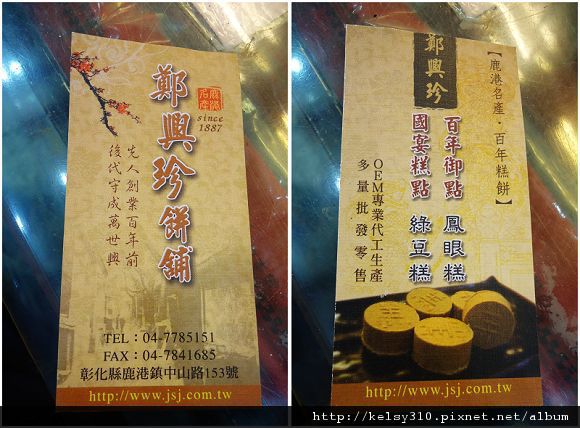 鄭興珍餅舖
鹿港
名產
since
1887
先人創業百年前
後代守成萬世興
TEL：04-7785151
FAX：04-7841685
彰化縣鹿港鎮中山路153號
http://www.jsj.com.tw
鄭興珍
【鹿港名產・百年糕餅】
百年御點 鳳眼糕
國宴糕點 綠豆糕
OEM專業代工生產
多量批發零售
http://www.jsj.com.tw
http://kelsy310.pixnet.net/album